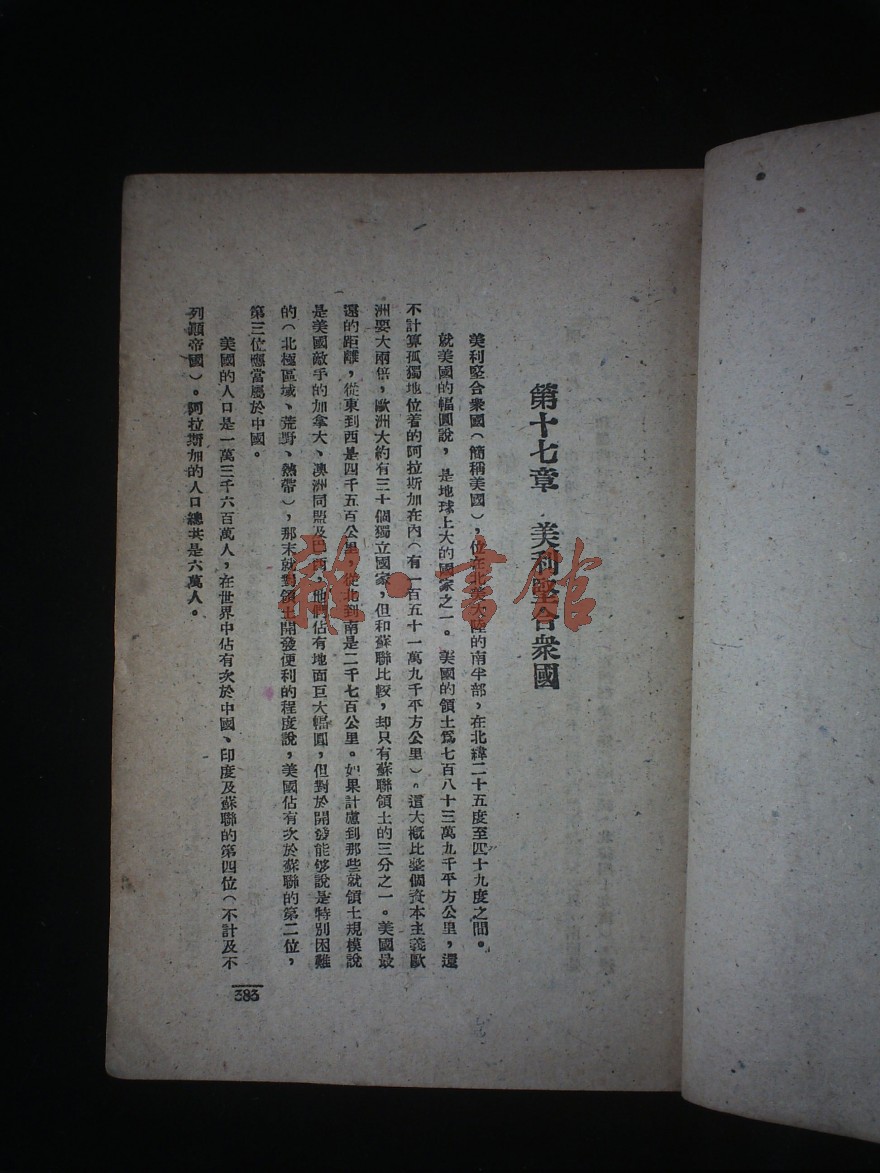 第十七章 美利堅合衆國
美利堅合衆國(簡稱美國),位在北美大陸的南半部,在北緯二十五度至四十九度之間。
就美國的幅圓說,是地球上大的國家之一。美國的領土爲七百八十三萬九千平方公里,還
不計算孤獨地位着的阿拉斯加在內(有一百五十一萬九千平方公里)。這大概比整個資本主義歐
洲要大兩倍,歐洲大約有三十個獨立國家,但和蘇聯比較,却只有蘇聯領土的三分之一。美國最
遠的距離,從東到西是四千五百公里,從北到南是二千七百公里。如果計慮到那些就領土規模說
是美國敵手的加拿大、澳洲同盟及巴西,他們佔有地面巨大幅圓,但對於開發能够說是特別困難
的(北極區域、荒野、熱帶),那末就對領土開發便利的程度說,美國佔有次於蘇聯的第二位,
第三位應當屬於中國。
美國的人口是一萬三千六百萬人,在世界中佔有次於中國、印度及蘇聯的第四位(不計及不
列顛帝國)。阿拉斯加的人口總共是六萬人。
383
雜·書館